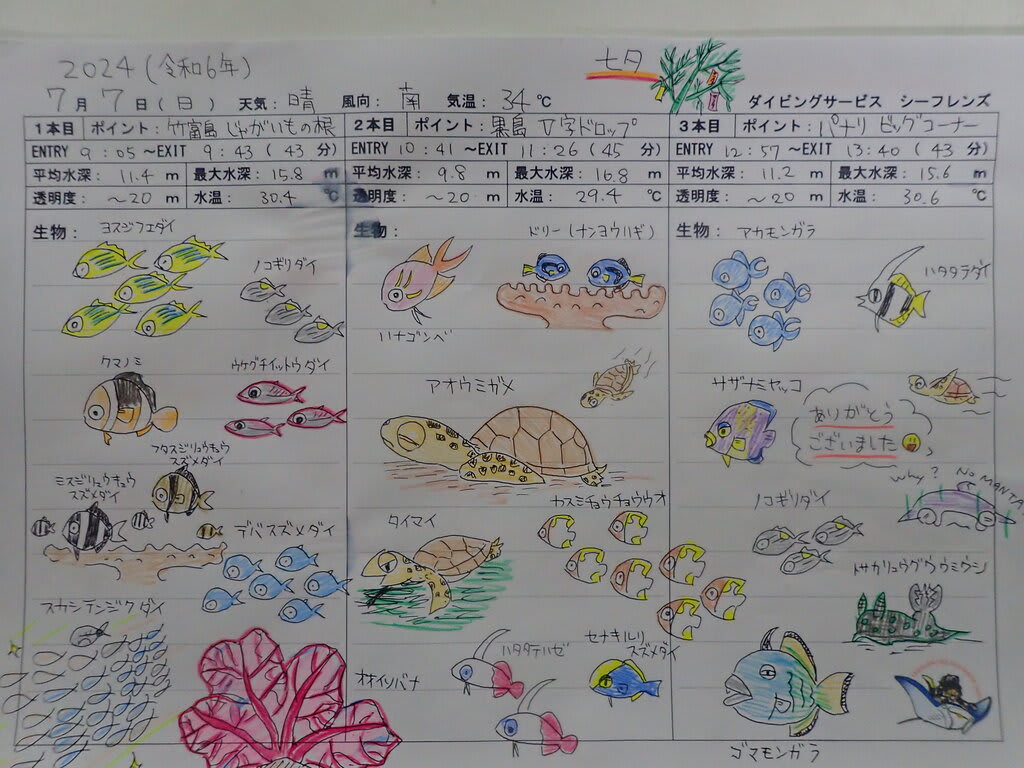 2024(令和6年)
七夕
7月7日(日) 天気:晴 風向:南 気温:34℃ ダイビングサービス シーフレンズ
1本目 ポイント:竹富島 じゃがいもの根
ENTRY 9:05~EXIT 9:43(43分)
平均水深:11.4m 最大水深:15.8m
透明度:~20m 水温:30.4℃
生物: ヨスジフエダイ
ノコギリダイ
クマノミ
ウケグチイットウダイ
フタスジリュウキュウ
スズメダイ
ミスジリュウキュウ
スズメダイ
デバスズメダイ
スカシテンジクダイ
オオイソバナ
2本目 ポイント:黒島 V字ドロップ
ENTRY 10:41~EXIT 11:26(45分)
平均水深:9.8m 最大水深:16.8m
透明度:~20m 水温:29.4℃
生物: ドリー(ナンヨウハギ)
ハナゴンベ
アオウミガメ
カスミチョウチョウウオ
タイマイ
ハタタテハゼ
セナキルリ
スズメダイ
3本目 ポイント:パナリ ビッグコーナー
ENTRY 12:57~EXIT 13:40(43分)
平均水深:11.2m 最大水深:15.6m
透明度:~20m 水温:30.6℃
生物: アカモンガラ
ハタタテダイ
サザナミヤッコ
ありがとう
ございました
Why? No MANTA
ノコギリダイ
トサカリュウグウウミウシ
ゴマモンガラ